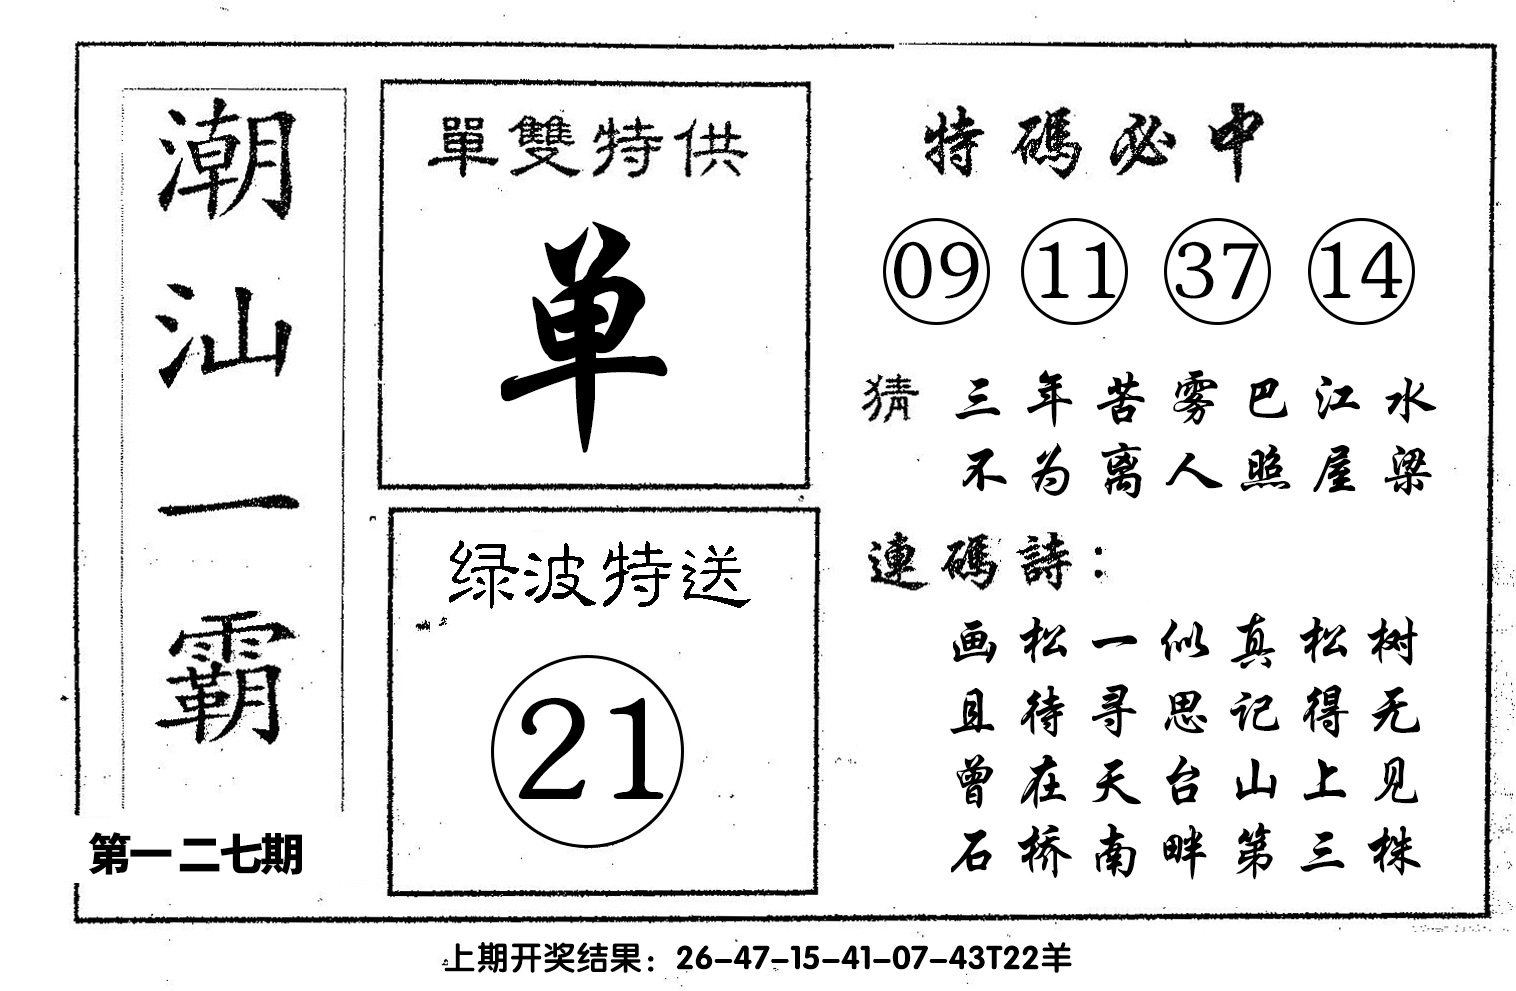 潮汕一霸
第一二七期
單雙特供
单
绿波特送
21
特碼必中
09 11 37 14
猜 三年苦雾巴江水
不为离人照屋梁
連碼詩：
画松一似真松树
且待寻思记得无
曾在天台山上见
石桥南畔第三株
上期开奖结果：26-47-15-41-07-43T22羊